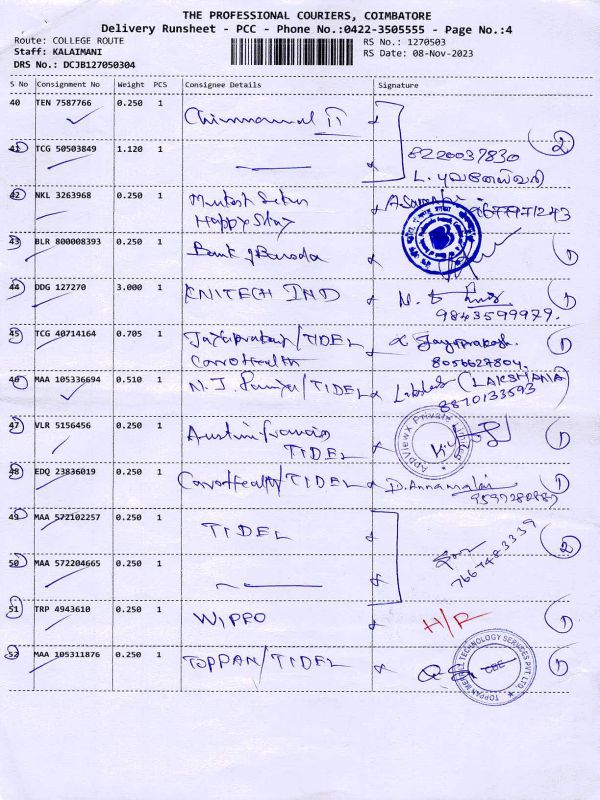 THE PROFESSIONAL COURIERS, COIMBATORE
Delivery Runsheet - PCC - Phone No.:0422-3505555 - Page No.:4
Route: COLLEGE ROUTE RS No.: 1270503
Staff: KALAIMANI RS Date: 08-Nov-2023
DRS No.: DCJB127050304
S No Consignment No Weight PCS Consignee Details Signature
40 TEN 7587766 0.250 1
41 TCG 50503849 1.120 1 8220037830 2
42 NKL 3263968 0.250 1
Happy Stay
43 BLR 800008393 0.250 1 Bank of Baroda 1
44 DDG 127270 3.000 1 KNITECH IND 1
9843599979.
45 TCG 40714164 0.705 1 Jayaprakash/TIDEL Jayaprakash. 1
CarrotHealth 8056627804.
46 MAA 105336694 0.510 1 N.J. /TIDEL (LAKSHANA)
8870133593
47 VLR 5156456 0.250 1 Austin Francis AppViewX Private Limited 1
TIDEL
48 EDQ 23836019 0.250 1 CarrotHealth/TIDEL D. Annamalai 1
49 MAA 572102257 0.250 1 TIDEL 7667483339 2
50 MAA 572204665 0.250 1
51 TRP 4943610 0.250 1 WIPRO H/R 1
52 MAA 105311876 0.250 1 TOPPAN/TIDEL 1
TOPPAN MERRILL TECHNOLOGY SERVICES PVT. LTD.
CBE